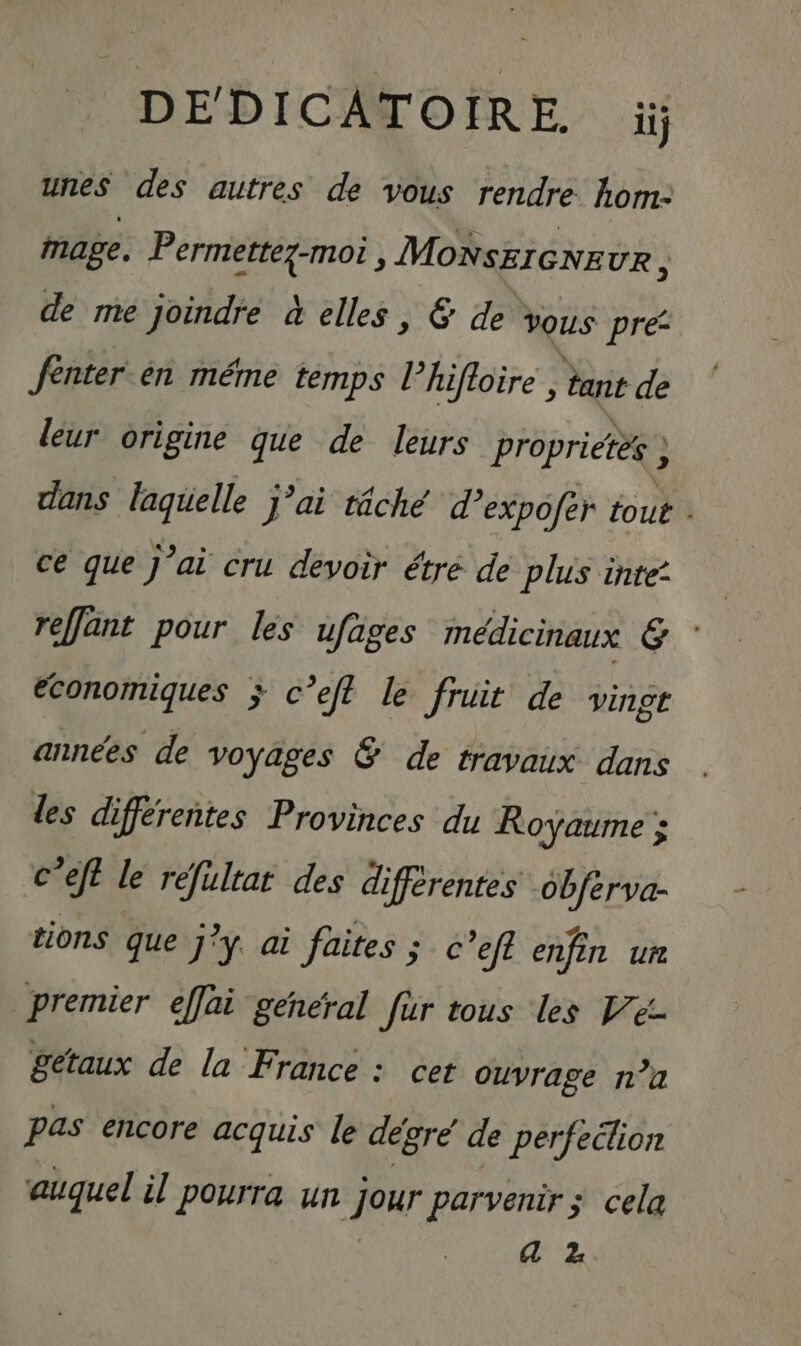 DE'DICATOIRE. iij
unes des autres de vous rendre hom-
mage. Permettez-moi, MONSEIGNEUR,
de me joindre à elles, & de vous pré-
ſenter en même temps l'hiſtoire, tant de
leur origine que de leurs propriétés,
dans laquelle j'ai tâché d'expoſer tout
ce que j'ai cru devoir être de plus inté-
reſſant pour les uſages médicinaux &
économiques ; c'eſt le fruit de vingt
années de voyages & de travaux dans
les différentes Provinces du Royaume ;
c'eſt le réſultat des différentes obſerva-
tions que j'y ai faites ; c'eſt enfin un
premier eſſai général ſur tous les Vé-
gétaux de la France : cet ouvrage n'a
pas encore acquis le dégré de perfection
auquel il pourra un jour parvenir ; cela
a 2